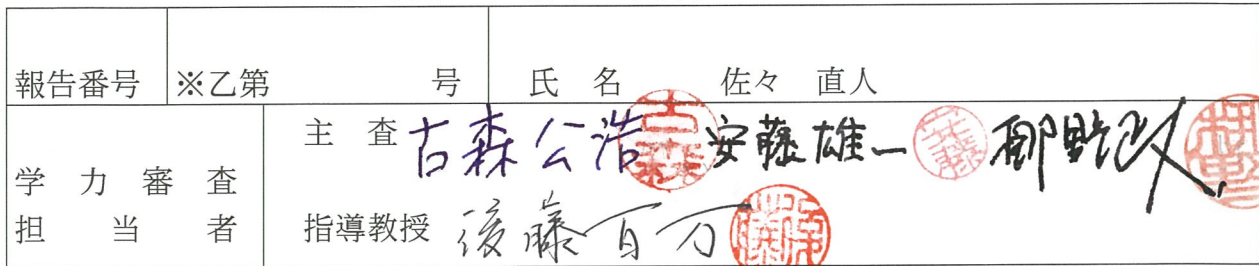 報告番号 ※乙第 号 氏名 佐々 直人
学力審査 主査 古森公浩 安藤雄一
担当者 指導教授 後藤百万